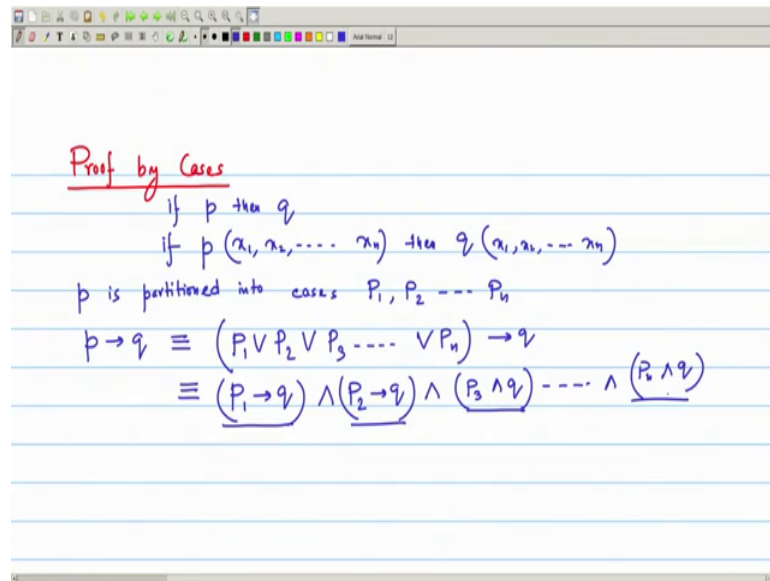 Arial Normal 12
Proof by Cases
if p then q
if p (x₁, x₂, ---- xₙ) then q (x₁, x₂, --- xₙ)
p is partitioned into cases P₁, P₂ --- Pₙ
p → q ≡ (P₁ ∨ P₂ ∨ P₃ ---- ∨ Pₙ) → q
≡ (P₁ → q) ∧ (P₂ → q) ∧ (P₃ ∧ q) ---- ∧ (Pₙ ∧ q)